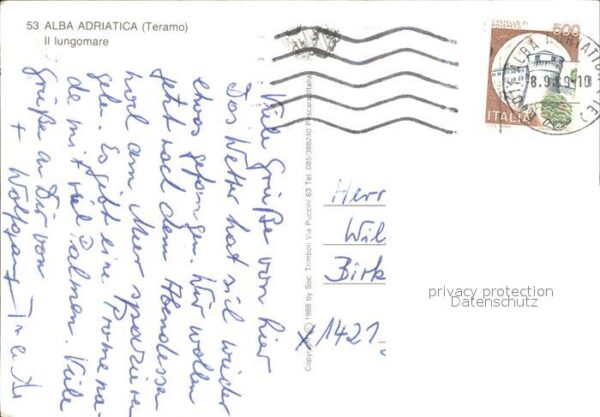 53 ALBA ADRIATICA (Teramo)
Il lungomare
Viele Grüße von hier
Das Wetter hat sich wieder
etwas gefangen. Wir wollen
jetzt nach dem Abendessen
noch am Meer spazieren
gehn. Es gibt eine Promena-
de mit viel Palmen. Viele
Grüße an Dir von
+ Wolfgang
Copyright © 1988 by Soc. Trimboli Via Puccini 63 Tel. 085/388240 Pescara-Italia
CASTELLO DI
ROVERETO
500
ITALIA
ALBA ADRIATICA
(TE)
8.9.89-10
Herr
Wil
Birk
x 1421
privacy protection
Datenschutz